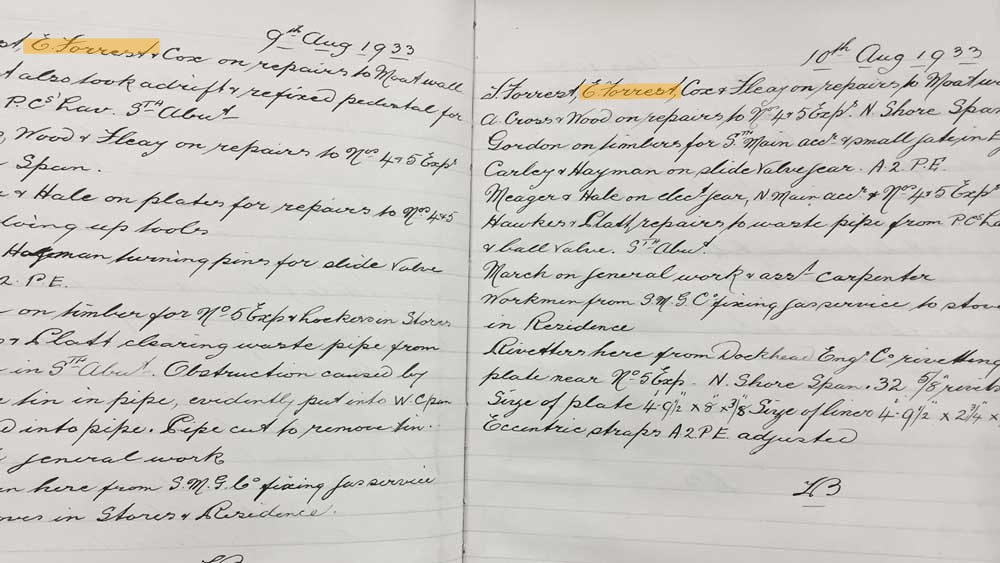 9th Aug 1933
E. Forrest & Cox on repairs to Moat wall
also took adrift & refixed pedestal for
P.Cs' Lav. STH Abut.
Wood & Fleay on repairs to Nos 4 & 5 Expn
Span.
& Hale on plates for repairs to Nos 4 & 5
up tools
Hayman turning pins for slide valve
2. P.E.
on timber for No 5 Exp & lockers in Stores
& Platt clearing waste pipe from
in STH Abut. Obstruction caused by
tin in pipe, evidently put into W.C. pan
into pipe. Pipe cut to remove tin.
general work
here from S.M.G. Co fixing gas service
in Stores & Residence.
10th Aug 1933
T. Forrest, E. Forrest, Cox & Fleay on repairs to Moat
A. Cross & Wood on repairs to Nos 4 & 5 Expn. N. Shore Span
Gordon on timbers for STH Main accr & small gate, in
Carley & Hayman on slide valve gear. A.2. P.E.
Meager & Hale on elecl gear, N Main accr & Nos 4 & 5 Expn
Hawkes & Platt, repairs to waste pipe from P.Cs
& ball valve. STH Abut.
March on general work & asst carpenter
Workmen from S.M.G. Co fixing gas service to
in Residence
Rivetters here from Dockhead Engr Co rivetting
plate near No 5 Exp. N. Shore Span. 32 5/8"
Size of plate 4'-9½" x 8" x 3/8. Size of liner 4'-9½" x 2¾" x
Eccentric straps A 2 P.E. adjusted